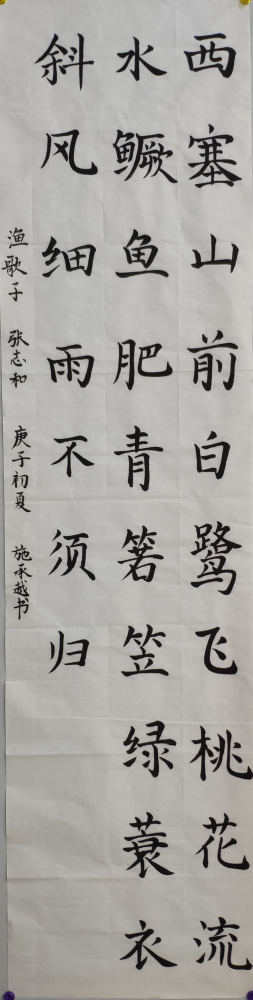 西塞山前白鹭飞桃花流
水鳜鱼肥青箬笠绿蓑衣
斜风细雨不须归
渔歌子 张志和 庚子初夏 施承越书